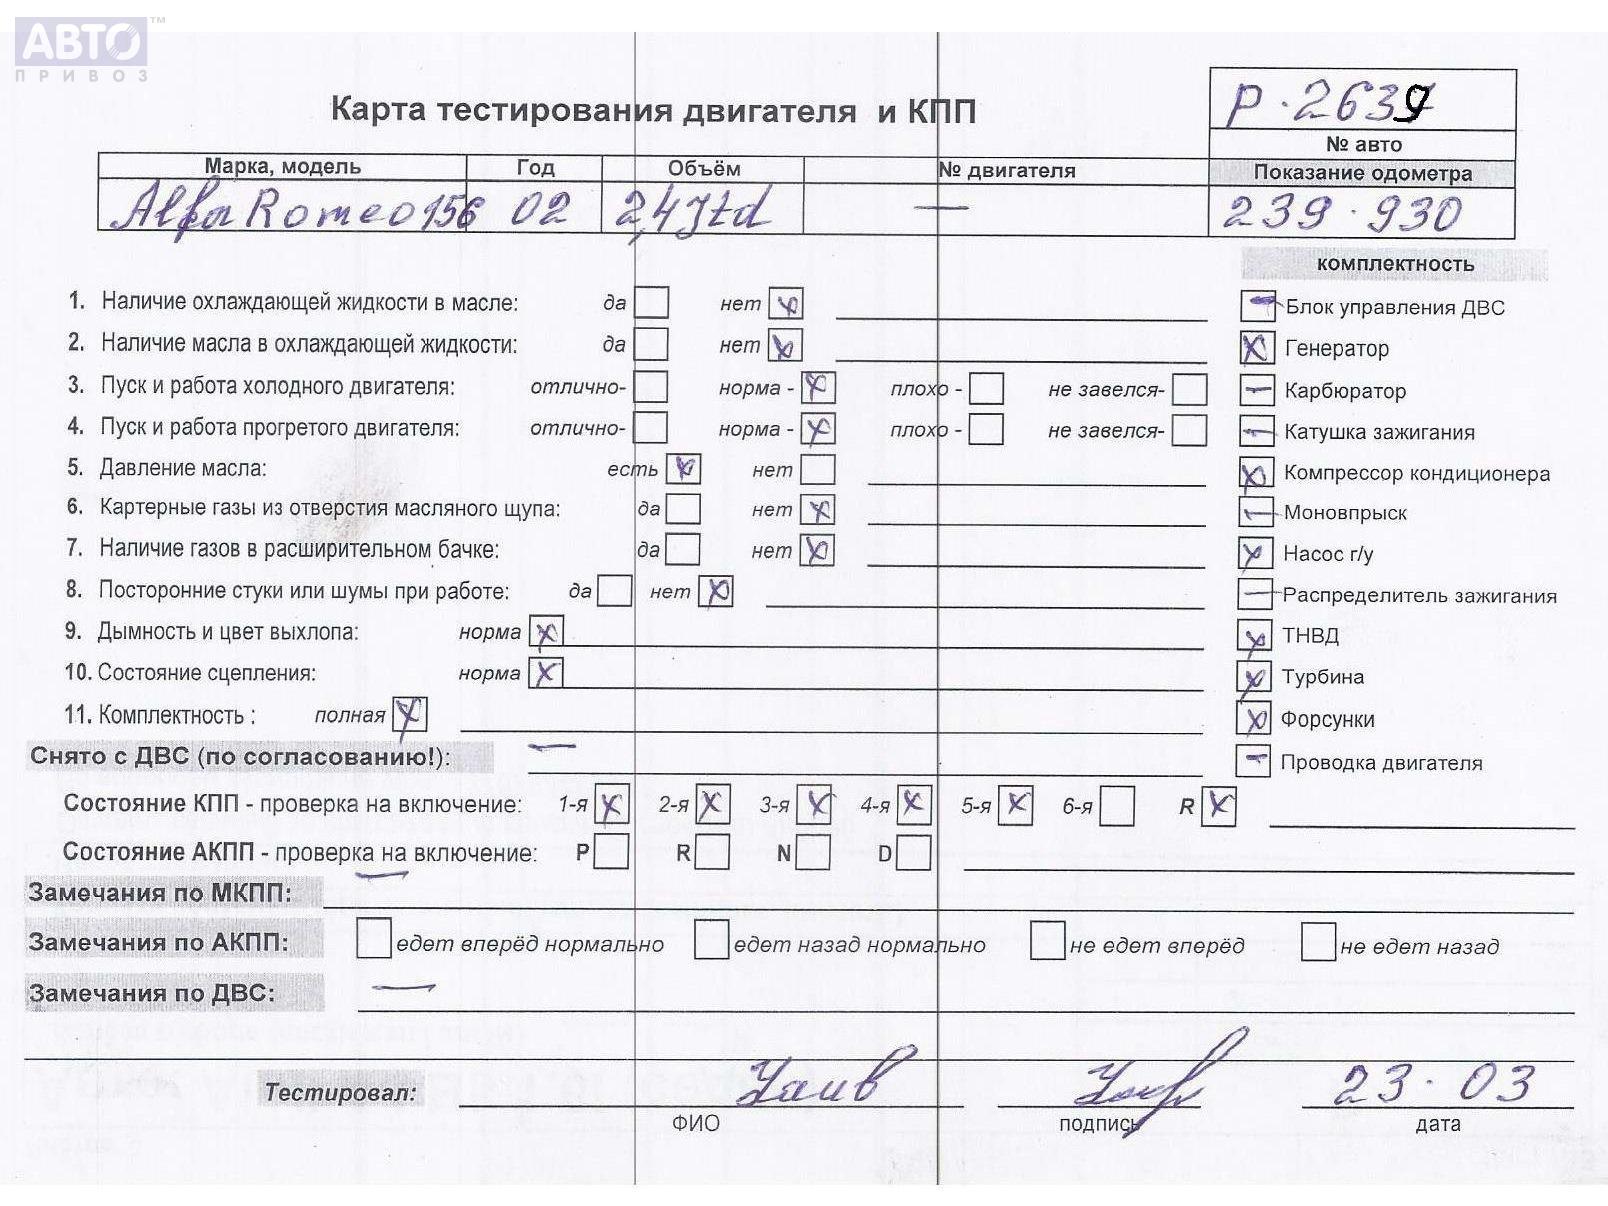 АВТО™
ПРИВОЗ
Карта тестирования двигателя и КПП
Р·2639
№ авто
Марка, модель Год Объём № двигателя Показание одометра
Alfa Romeo 156 02 2,4 Jtd — 239·930
комплектность
1. Наличие охлаждающей жидкости в масле: да нет x
Блок управления ДВС
2. Наличие масла в охлаждающей жидкости: да нет x
x Генератор
3. Пуск и работа холодного двигателя: отлично- норма - x плохо - не завелся-
— Карбюратор
4. Пуск и работа прогретого двигателя: отлично- норма - x плохо - не завелся-
— Катушка зажигания
5. Давление масла: есть x нет
x Компрессор кондиционера
6. Картерные газы из отверстия масляного щупа: да нет x
— Моновпрыск
7. Наличие газов в расширительном бачке: да нет x
x Насос г/у
8. Посторонние стуки или шумы при работе: да нет x
— Распределитель зажигания
9. Дымность и цвет выхлопа: норма x
x ТНВД
10. Состояние сцепления: норма x
x Турбина
11. Комплектность : полная x
x Форсунки
Снято с ДВС (по согласованию!): —
— Проводка двигателя
Состояние КПП - проверка на включение: 1-я x 2-я x 3-я x 4-я x 5-я x 6-я R x
Состояние АКПП - проверка на включение: P R N D
Замечания по МКПП: —
Замечания по АКПП: едет вперёд нормально едет назад нормально не едет вперёд не едет назад
Замечания по ДВС: —
Тестировал: 23·03
ФИО подпись дата